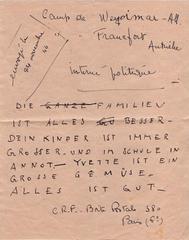 Camp de
Francfort
Autriche
envoyé le
24 novembre
44
Interné politique
DIE GANZE FAMILIEU
IST ALLES GU BESSER-
DEIN KINDER IST IMMER
GROSSER, UND IM SCHULE IN
ANNOT- YVETTE IST EIN
GROSSE GEMÜSE.
ALLES IST GUT-
C.R.F- Bte Postale 520
Paris (8e)